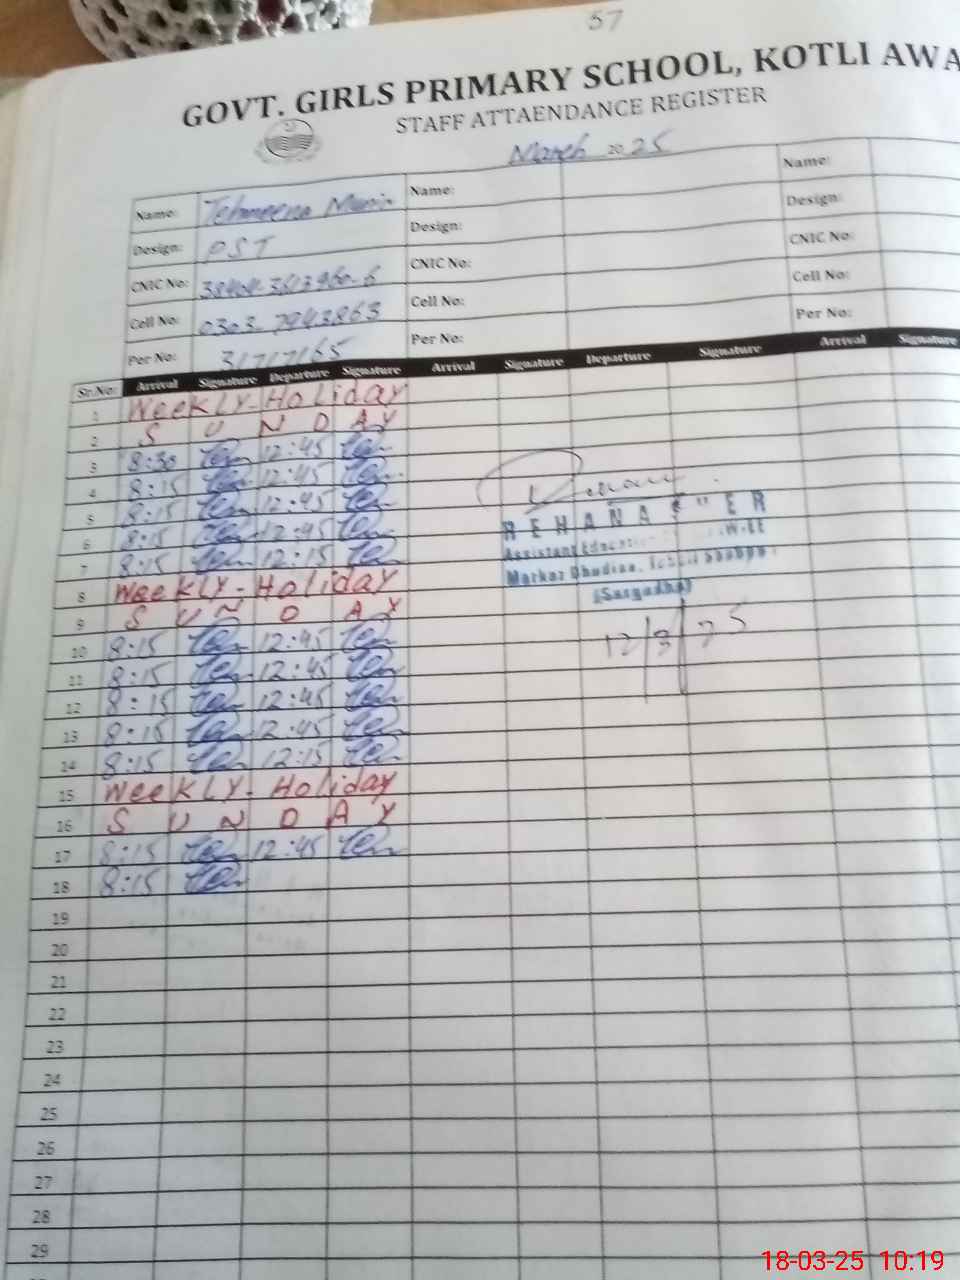 57
GOVT. GIRLS PRIMARY SCHOOL, KOTLI AWA
STAFF ATTAENDANCE REGISTER
March 2025
Name: Tehmeena Name: Name:
Design: PST Design: Design:
CNIC No: CNIC No: CNIC No:
Cell No: 0303-7943863 Cell No: Cell No:
Per No: 31717165 Per No: Per No:
Sr.No: Arrival Signature Departure Signature Arrival Signature Departure Signature Arrival Signature
1 Weekly-Holiday
2 S U N D A Y
3 8:30 12:45
4 8:15 12:45
5 8:15 12:45
6 8:15 12:45
7 8:15 12:15
8 Weekly-Holiday
9 S U N D A Y
10 8:15 12:45
11 8:15 12:45
12 8:15 12:45
13 8:15 12:45
14 8:15 12:15
15 Weekly-Holiday
16 S U N D A Y
17 8:15 12:45
18 8:15
19
20
21
22
23
24
25
26
27
28
29
REHANA
Assistant Education W-EE
Markaz
(Sargodha)
12/3/25
18-03-25 10:19